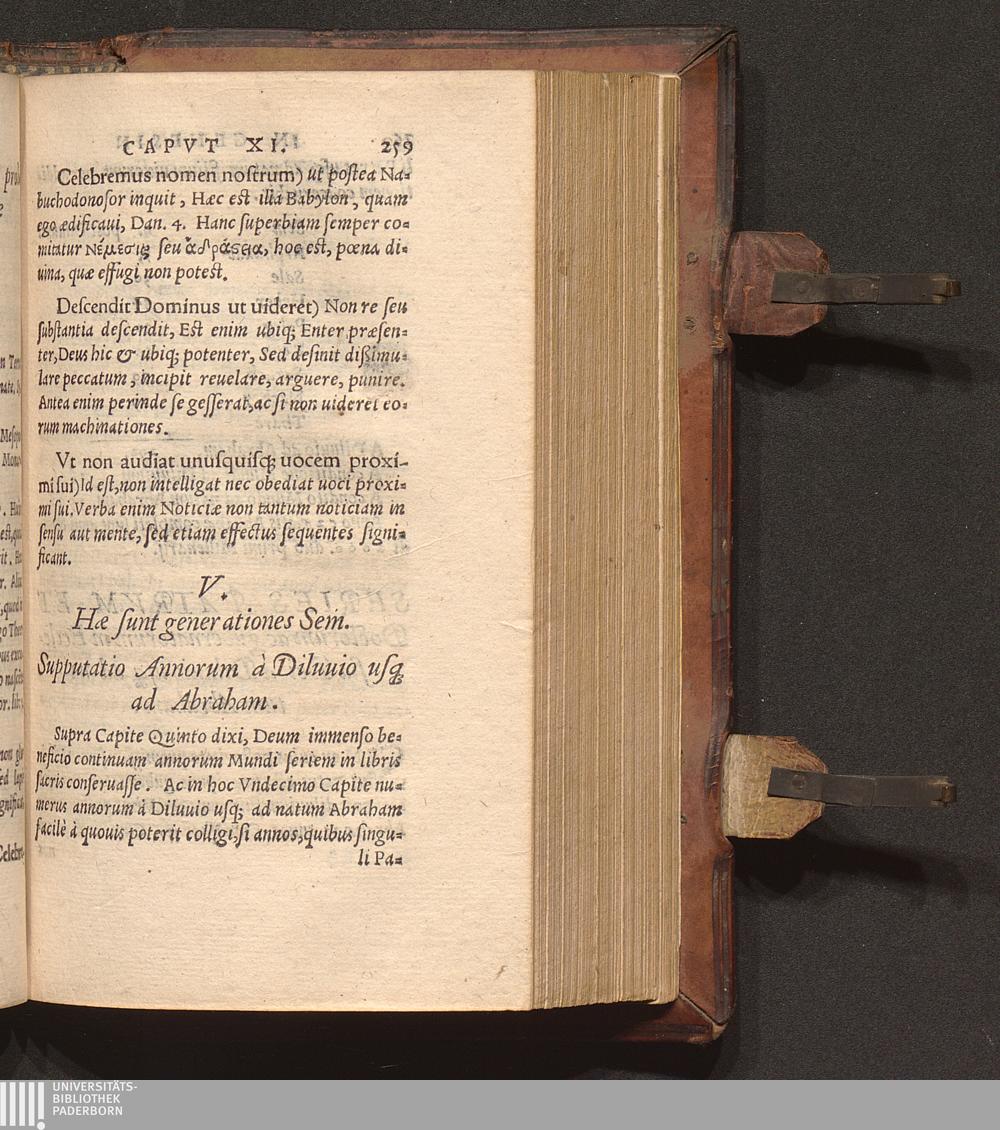 CAPVT XI. 259
Celebremus nomen noſtrum) ut poſtea Na⸗
buchodonoſor inquit, Hæc eſt illa Babylon, quam
ego ædificaui, Dan. 4. Hanc ſuperbiam ſemper co⸗
mitatur Νέμεσις ſeu ἀδράςεια, hoc eſt, pœna di⸗
uina, quæ effugi non poteſt.
Deſcendit Dominus ut uideret) Non re ſeu
ſubſtantia deſcendit, Eſt enim ubiq; Enter præſen⸗
ter, Deus hic & ubiq; potenter, Sed deſinit dißimu⸗
lare peccatum, incipit reuelare, arguere, punire.
Antea enim perinde ſe geſſerat, ac ſi non uideret eo⸗
rum machinationes.
Vt non audiat unuſquiſq; uocem proxi-
mi ſui) Id eſt, non intelligat nec obediat uoci proxi⸗
mi ſui. Verba enim Noticiæ non tantum noticiam in
ſenſu aut mente, ſed etiam effectus ſequentes ſigni⸗
ficant.
V.
Hæ ſunt generationes Sem.
Supputatio Annorum à Diluuio uſq;
ad Abraham.
Supra Capite Quinto dixi, Deum immenſo be⸗
neficio continuam annorum Mundi ſeriem in libris
ſacris conſeruaſſe. Ac in hoc Vndecimo Capite nu⸗
merus annorum à Diluuio uſq; ad natum Abraham
facilè à quouis poterit colligi, ſi annos, quibus ſingu⸗
li Pa⸗
UNIVERSITÄTS-
BIBLIOTHEK
PADERBORN